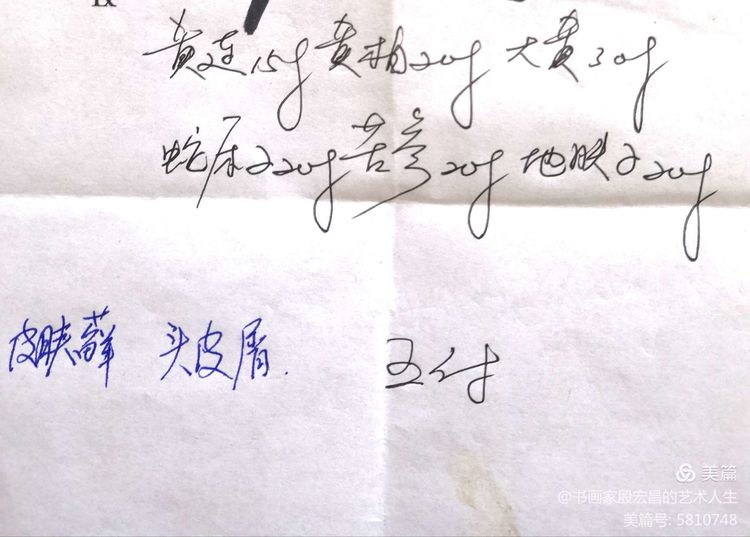 黄连15g 黄柏20g 大黄30g
蛇床子20g 苦参20g 地肤子20g
皮肤藓 头皮屑. 五付
美篇
@书画家殷宏昌的艺术人生
美篇号: 5810748